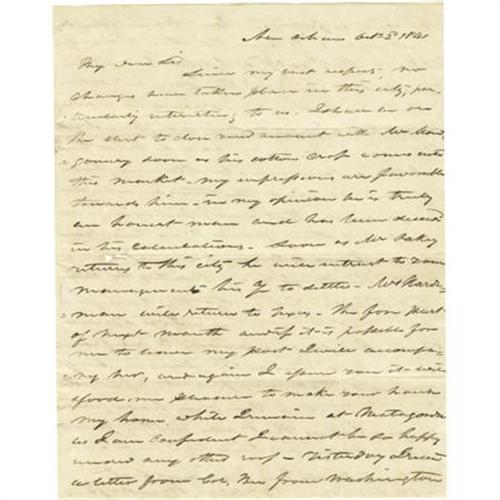 New Orleans Oct 5th 1841
My Dear Sir
Since my last respect, no
changes have taken place in this city, par-
ticularly interesting to us. I shall be on
the alert to close and account with Mr Mon-
gomery soon as his cotton crop comes into
this market - my impressions are favorable
towards him - in my opinion he is truly
an honest man and has been deceived
in his calculations - Soon as Mr
returns to this city he will intrust to your
management his to settle - Mrs Hardi-
man will return to Texas - the fore part
of next month and if it is possible for
me to leave my post I will accompa-
ny her, and again I assure you it will
afford me pleasure to make your house
my home while I remain at Matagorda
as I am confident I cannot be so happy
under any other roof - Yesterday I
a letter from Col, from Washington